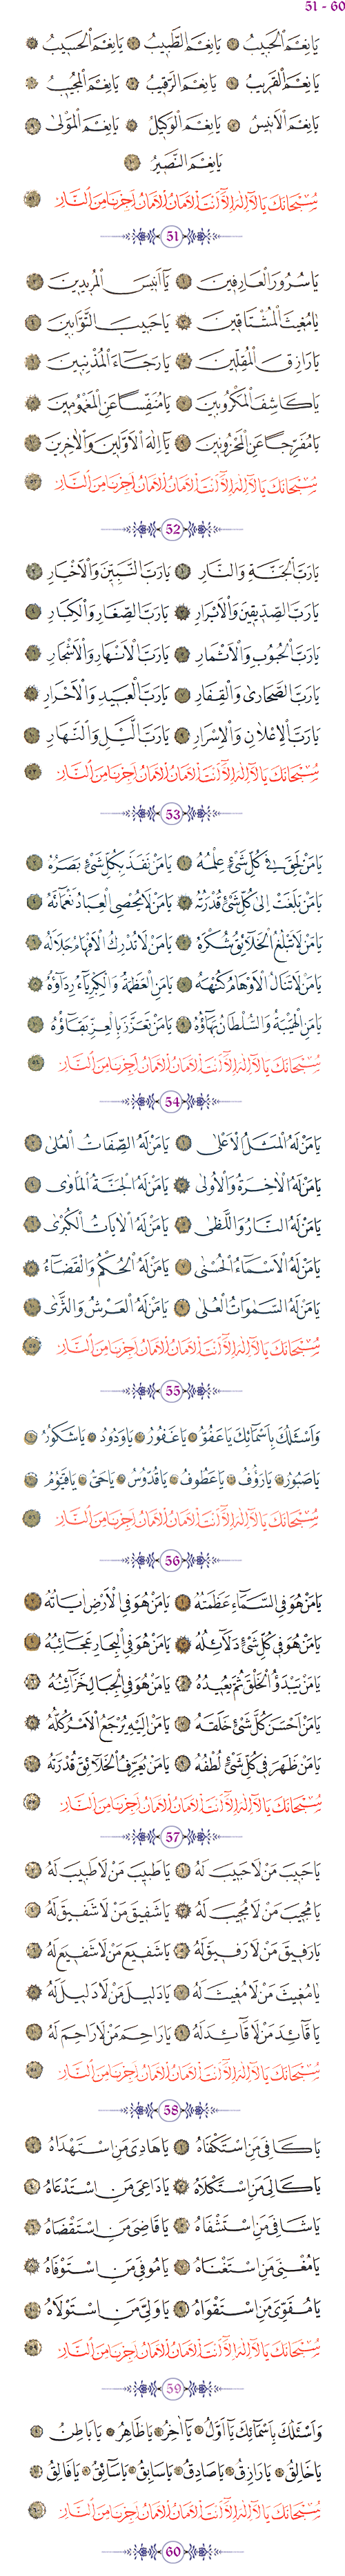 51 - 60
يَا نِعْمَ الْحَبِيبُ ١ يَا نِعْمَ الطَّبِيبُ ٢ يَا نِعْمَ الْحَسِيبُ ٣
يَا نِعْمَ الْقَرِيبُ ٤ يَا نِعْمَ الرَّقِيبُ ٥ يَا نِعْمَ الْمُجِيبُ ٦
يَا نِعْمَ الْاَنِيسُ ٧ يَا نِعْمَ الْوَكِيلُ ٨ يَا نِعْمَ الْمَوْلٰى ٩
يَا نِعْمَ النَّصِيرُ ١٠
سُبْحَانَكَ يَا لَٓا اِلٰهَ اِلَّٓا اَنْتَ الْاَمَانُ الْاَمَانُ اَجِرْنَا مِنَ النَّارِ ٥١
51
يَا سُرُورَ الْعَارِفِينَ ١ يَٓا اَنِيسَ الْمُرِيدِينَ ٢
يَا مُغِيثَ الْمُشْتَاقِينَ ٣ يَا حَبِيبَ التَّوَّابِينَ ٤
يَا رَازِقَ الْمُقِلِّينَ ٥ يَا رَجَٓاءَ الْمُذْنِبِينَ ٦
يَا كَاشِفَ الْمَكْرُوبِينَ ٧ يَا مُنَفِّسًا عَنِ الْمَغْمُومِينَ ٨
يَا مُفَرِّجًا عَنِ الْمَحْزُونِينَ ٩ يَٓا اِلٰهَ الْاَوَّلِينَ وَالْاٰخِرِينَ ١٠
سُبْحَانَكَ يَا لَٓا اِلٰهَ اِلَّٓا اَنْتَ الْاَمَانُ الْاَمَانُ اَجِرْنَا مِنَ النَّارِ ٥٢
52
يَا رَبَّ الْجَنَّةِ وَالنَّارِ ١ يَا رَبَّ النَّبِيِّينَ وَالْاَخْيَارِ ٢
يَا رَبَّ الصِّدِّيقِينَ وَالْاَبْرَارِ ٣ يَا رَبَّ الصِّغَارِ وَالْكِبَارِ ٤
يَا رَبَّ الْحُبُوبِ وَالْاَثْمَارِ ٥ يَا رَبَّ الْاَنْهَارِ وَالْاَشْجَارِ ٦
يَا رَبَّ الصَّحَارٰى وَالْقِفَارِ ٧ يَا رَبَّ الْعَبِيدِ وَالْاَحْرَارِ ٨
يَا رَبَّ الْاِعْلَانِ وَالْاِسْرَارِ ٩ يَا رَبَّ الَّيْلِ وَالنَّهَارِ ١٠
سُبْحَانَكَ يَا لَٓا اِلٰهَ اِلَّٓا اَنْتَ الْاَمَانُ الْاَمَانُ اَجِرْنَا مِنَ النَّارِ ٥٣
53
يَا مَنْ لَحِقَ فِي كُلِّ شَيْءٍ عِلْمُهُ ١ يَا مَنْ نَفَذَ بِكُلِّ شَيْءٍ بَصَرُهُ ٢
يَا مَنْ بَلَغَتْ اِلٰى كُلِّ شَيْءٍ قُدْرَتُهُ ٣ يَا مَنْ لَا يُحْصِي الْعِبَادُ نَعْمَٓائَهُ ٤
يَا مَنْ لَا تَبْلُغُ الْخَلَٓائِقُ شُكْرَهُ ٥ يَا مَنْ لَا تُدْرِكُ الْاَفْهَامُ جَلَالَهُ ٦
يَا مَنْ لَا تَنَالُ الْاَوْهَامُ كُنْهَهُ ٧ يَا مَنِ الْعَظَمَةُ وَالْكِبْرِيَٓاءُ رِدَاؤُهُ ٨
يَا مَنِ الْهَيْبَةُ وَالسُّلْطَانُ بَهَٓاؤُهُ ٩ يَا مَنْ تَعَزَّزَ بِالْعِزِّ بَقَٓاؤُهُ ١٠
سُبْحَانَكَ يَا لَٓا اِلٰهَ اِلَّٓا اَنْتَ الْاَمَانُ الْاَمَانُ اَجِرْنَا مِنَ النَّارِ ٥٤
54
يَا مَنْ لَهُ الْمَثَلُ الْاَعْلٰى ١ يَا مَنْ لَهُ الصِّفَاتُ الْعُلٰى ٢
يَا مَنْ لَهُ الْاٰخِرَةُ وَالْاُولٰى ٣ يَا مَنْ لَهُ الْجَنَّةُ الْمَاْوٰى ٤
يَا مَنْ لَهُ النَّارُ وَاللَّظٰى ٥ يَا مَنْ لَهُ الْاٰيَاتُ الْكُبْرٰى ٦
يَا مَنْ لَهُ الْاَسْمَٓاءُ الْحُسْنٰى ٧ يَا مَنْ لَهُ الْحُكْمُ وَالْقَضَٓاءُ ٨
يَا مَنْ لَهُ السَّمٰوَاتُ الْعُلٰى ٩ يَا مَنْ لَهُ الْعَرْشُ وَالثَّرٰى ١٠
سُبْحَانَكَ يَا لَٓا اِلٰهَ اِلَّٓا اَنْتَ الْاَمَانُ الْاَمَانُ اَجِرْنَا مِنَ النَّارِ ٥٥
55
وَاَسْئَلُكَ بِاَسْمَٓائِكَ يَا عَفُوُّ ١ يَا غَفُورُ ٢ يَا وَدُودُ ٣ يَا شَكُورُ ٤
يَا صَبُورُ ٥ يَا رَؤُفُ ٦ يَا عَطُوفُ ٧ يَا قُدُّوسُ ٨ يَا حَيُّ ٩ يَا قَيُّومُ ١٠
سُبْحَانَكَ يَا لَٓا اِلٰهَ اِلَّٓا اَنْتَ الْاَمَانُ الْاَمَانُ اَجِرْنَا مِنَ النَّارِ ٥٦
56
يَا مَنْ هُوَ فِي السَّمَٓاءِ عَظَمَتُهُ ١ يَا مَنْ هُوَ فِي الْاَرْضِ اٰيَاتُهُ ٢
يَا مَنْ هُوَ فِي كُلِّ شَيْءٍ دَلَٓائِلُهُ ٣ يَا مَنْ هُوَ فِي الْبِحَارِ عَجَٓائِبُهُ ٤
يَا مَنْ يَبْدَؤُ الْخَلْقَ ثُمَّ يُعِيدُهُ ٥ يَا مَنْ هُوَ فِي الْجِبَالِ خَزَٓائِنُهُ ٦
يَا مَنْ اَحْسَنَ كُلَّ شَيْءٍ خَلَقَهُ ٧ يَا مَنْ اِلَيْهِ يُرْجَعُ الْاَمْرُ كُلُّهُ ٨
يَا مَنْ ظَهَرَ فِي كُلِّ شَيْءٍ لُطْفُهُ ٩ يَا مَنْ يُعَرِّفُ الْخَلَٓائِقَ قُدْرَتَهُ ١٠
سُبْحَانَكَ يَا لَٓا اِلٰهَ اِلَّٓا اَنْتَ الْاَمَانُ الْاَمَانُ اَجِرْنَا مِنَ النَّارِ ٥٧
57
يَا حَبِيبَ مَنْ لَا حَبِيبَ لَهُ ١ يَا طَبِيبَ مَنْ لَا طَبِيبَ لَهُ ٢
يَا مُجِيبَ مَنْ لَا مُجِيبَ لَهُ ٣ يَا شَفِيقَ مَنْ لَا شَفِيقَ لَهُ ٤
يَا رَفِيقَ مَنْ لَا رَفِيقَ لَهُ ٥ يَا شَفِيعَ مَنْ لَا شَفِيعَ لَهُ ٦
يَا مُغِيثَ مَنْ لَا مُغِيثَ لَهُ ٧ يَا دَلِيلَ مَنْ لَا دَلِيلَ لَهُ ٨
يَا قَٓائِدَ مَنْ لَا قَٓائِدَ لَهُ ٩ يَا رَاحِمَ مَنْ لَا رَاحِمَ لَهُ ١٠
سُبْحَانَكَ يَا لَٓا اِلٰهَ اِلَّٓا اَنْتَ الْاَمَانُ الْاَمَانُ اَجِرْنَا مِنَ النَّارِ ٥٨
58
يَا كَافِيَ مَنِ اسْتَكْفَاهُ ١ يَا هَادِيَ مَنِ اسْتَهْدَاهُ ٢
يَا كَالِيَ مَنِ اسْتَكْلَاهُ ٣ يَا دَاعِيَ مَنِ اسْتَدْعَاهُ ٤
يَا شَافِيَ مَنِ اسْتَشْفَاهُ ٥ يَا قَاضِيَ مَنِ اسْتَقْضَاهُ ٦
يَا مُغْنِيَ مَنِ اسْتَغْنَاهُ ٧ يَا مُوفِيَ مَنِ اسْتَوْفَاهُ ٨
يَا مُقَوِّيَ مَنِ اسْتَقْوَاهُ ٩ يَا وَلِيَّ مَنِ اسْتَوْلَاهُ ١٠
سُبْحَانَكَ يَا لَٓا اِلٰهَ اِلَّٓا اَنْتَ الْاَمَانُ الْاَمَانُ اَجِرْنَا مِنَ النَّارِ ٥٩
59
وَاَسْئَلُكَ بِاَسْمَٓائِكَ يَٓا اَوَّلُ ١ يَٓا اٰخِرُ ٢ يَا ظَاهِرُ ٣ يَا بَاطِنُ ٤
يَا خَالِقُ ٥ يَا رَازِقُ ٦ يَا صَادِقُ ٧ يَا سَابِقُ ٨ يَا سَٓائِقُ ٩ يَا فَالِقُ ١٠
سُبْحَانَكَ يَا لَٓا اِلٰهَ اِلَّٓا اَنْتَ الْاَمَانُ الْاَمَانُ اَجِرْنَا مِنَ النَّارِ ٦٠
60